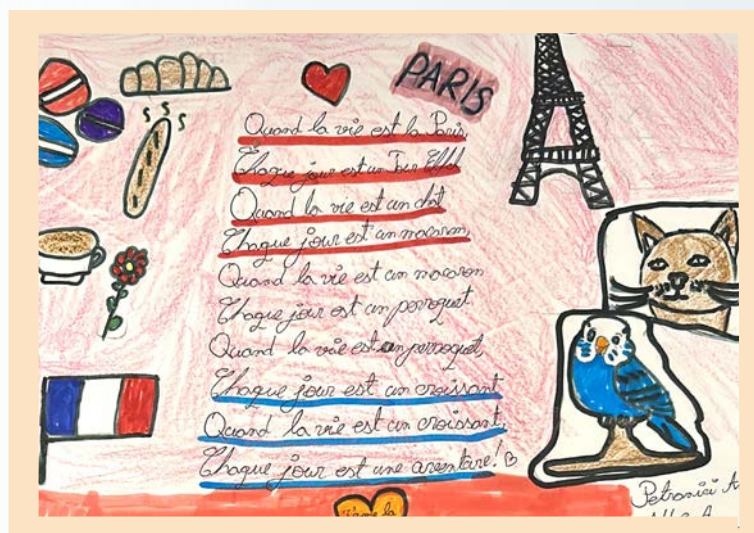 PARIS
Quand la vie est la Paris,
Chaque jour est un Tour Eiffel
Quand la vie est un chat
Chaque jour est un macaron,
Quand la vie est un macaron
Chaque jour est un perroquet
Quand la vie est un perroquet,
Chaque jour est un croissant
Quand la vie est un croissant,
Chaque jour est une aventure!
J'aime la
Petronici A